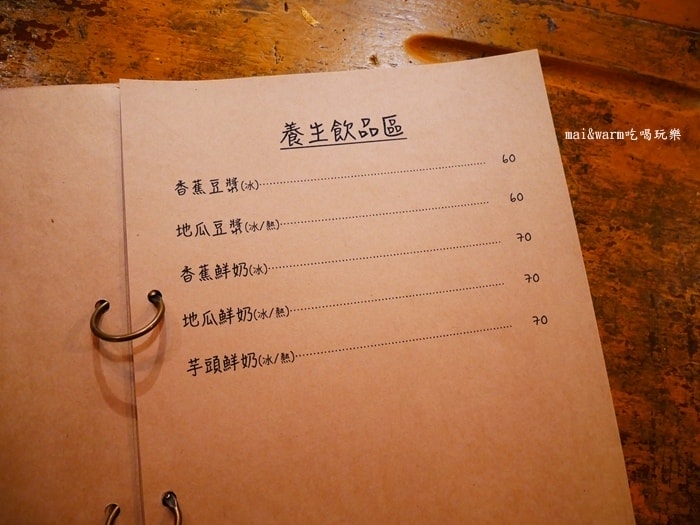 養生飲品區
香蕉豆漿(冰)........................60
地瓜豆漿(冰/熱)........................60
香蕉鮮奶(冰)........................70
地瓜鮮奶(冰/熱)........................70
芋頭鮮奶(冰/熱)........................70
mai&warm吃喝玩樂